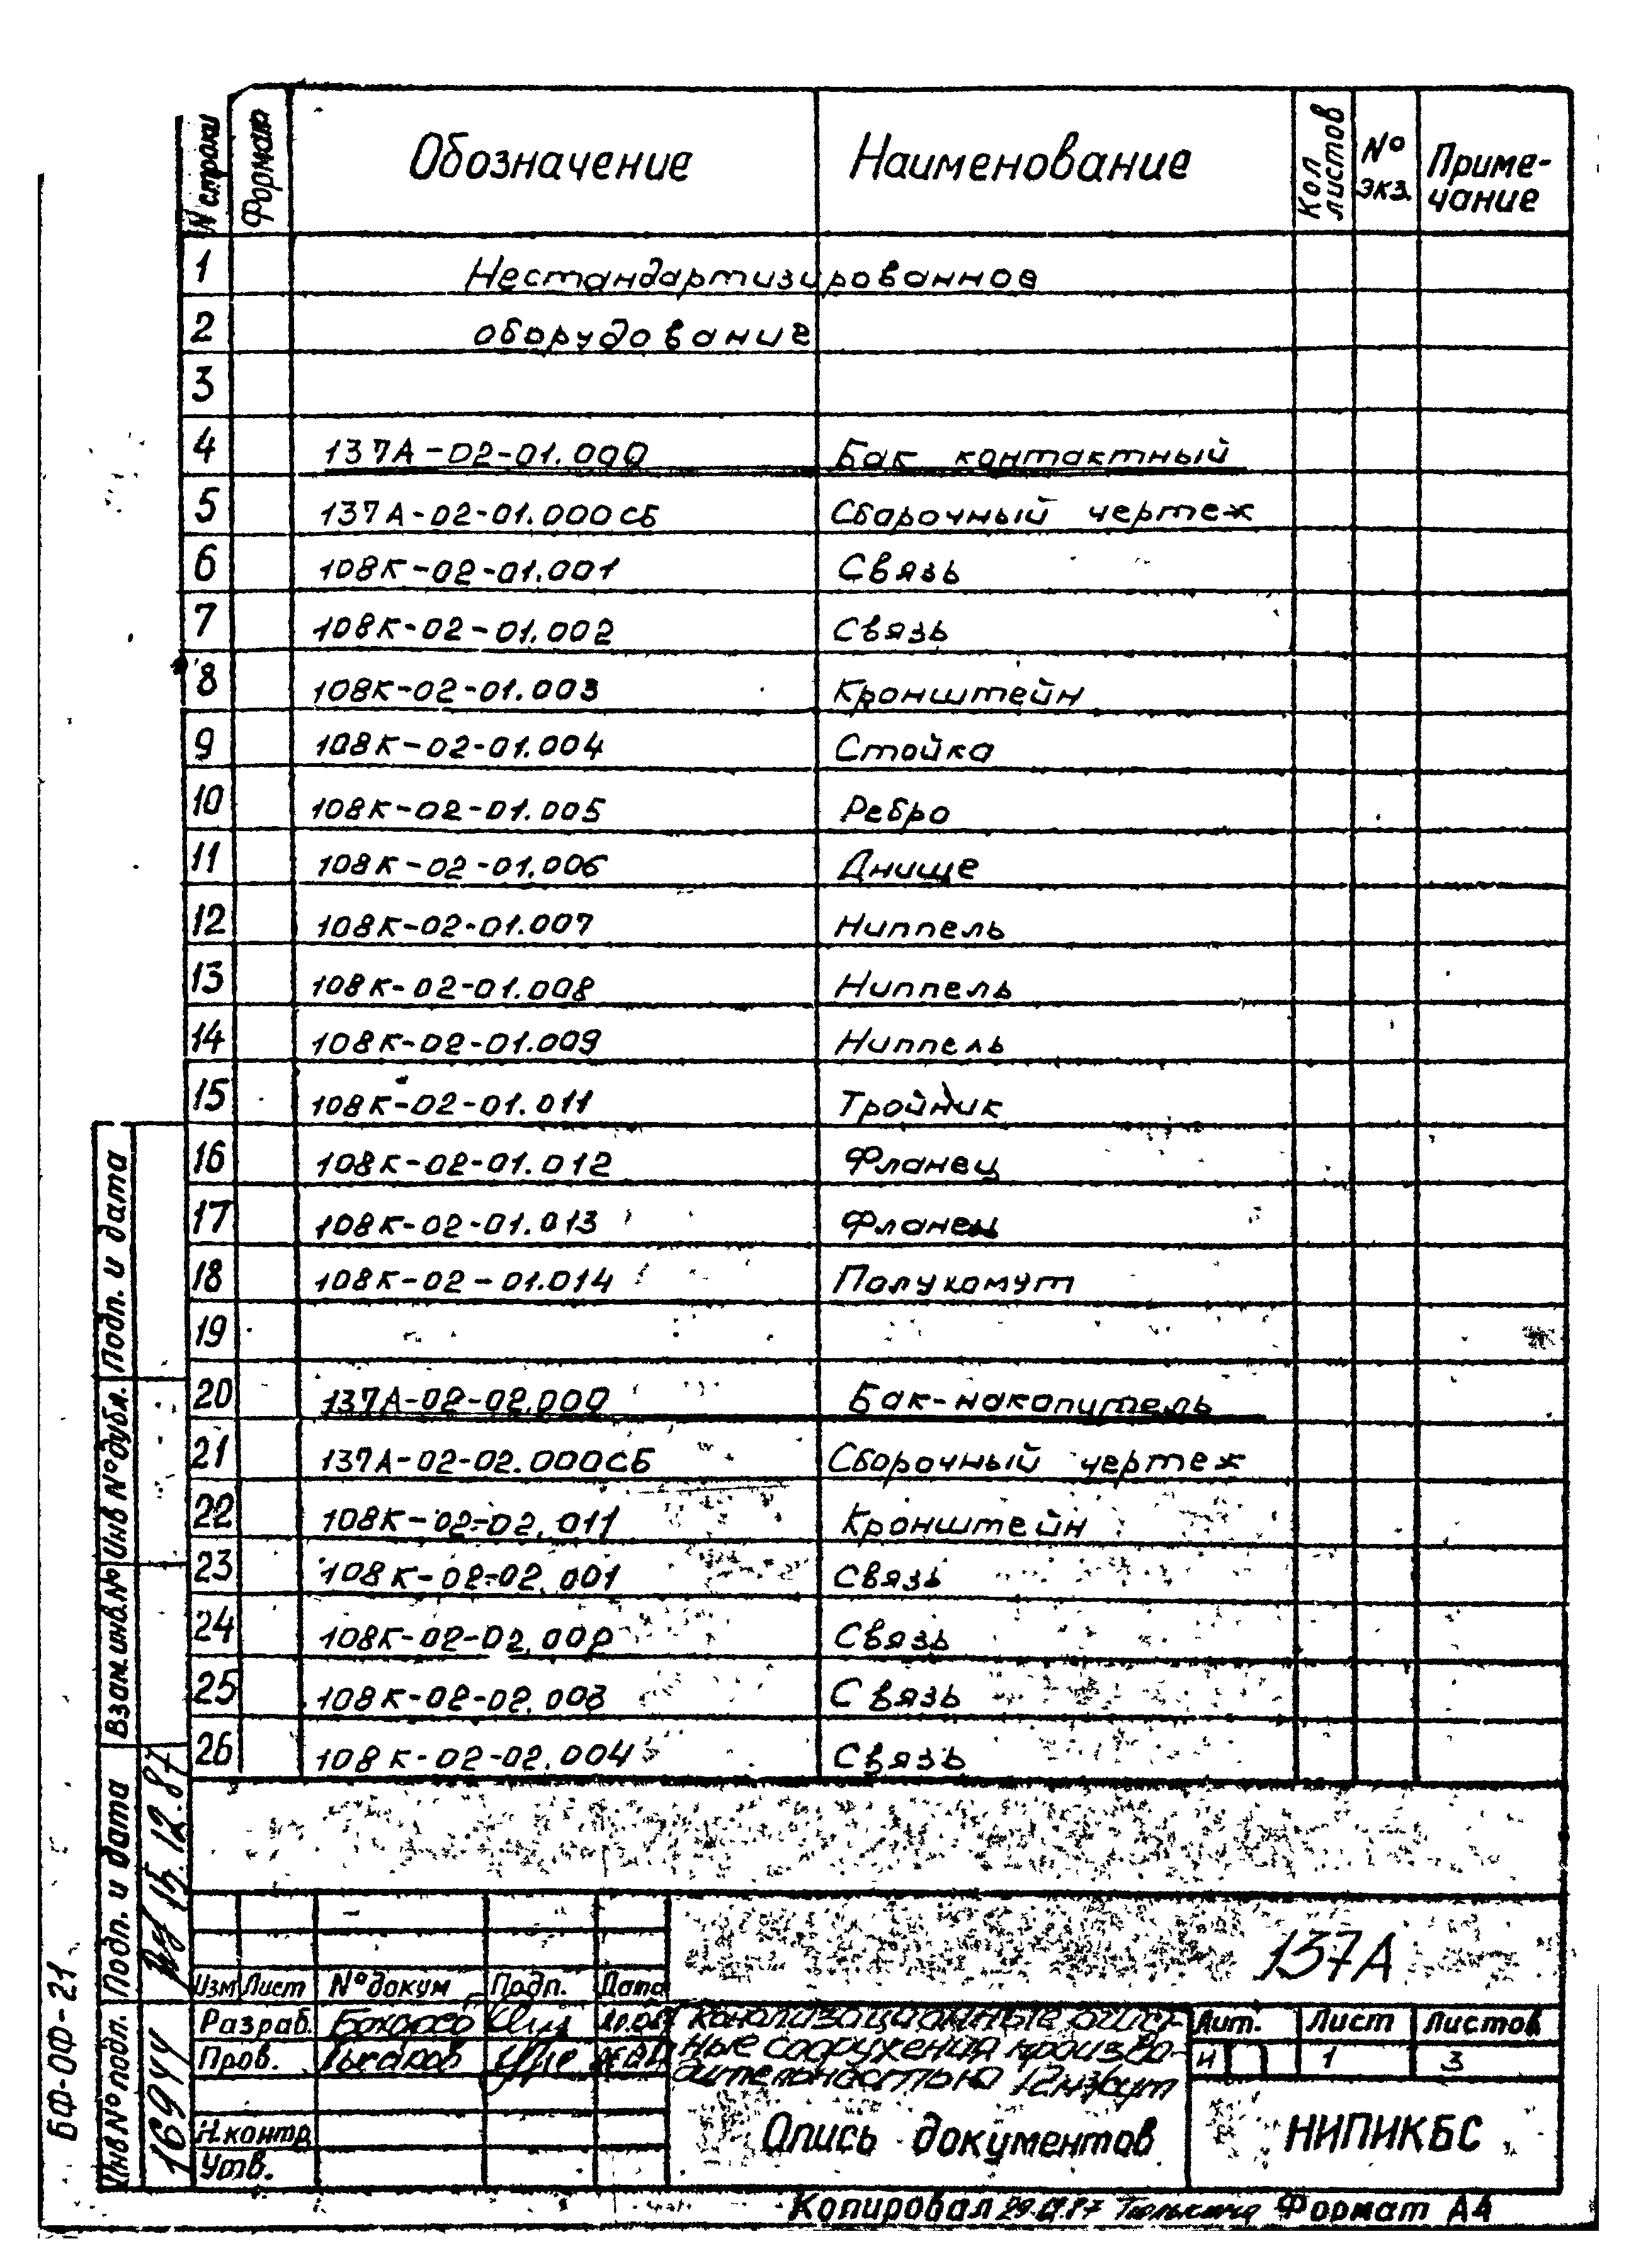 N строки Формат Обозначение Наименование Кол листов № экз. Приме-
чание
1 Нестандартизированное
2 оборудование
3
4 137А-02-01.000 Бак контактный
5 137А-02-01.000СБ Сборочный чертеж
6 108К-02-01.001 Связь
7 108К-02-01.002 Связь
8 108К-02-01.003 Кронштейн
9 108К-02-01.004 Стойка
10 108К-02-01.005 Ребро
11 108К-02-01.006 Днище
12 108К-02-01.007 Ниппель
13 108К-02-01.008 Ниппель
14 108К-02-01.009 Ниппель
15 108К-02-01.011 Тройник
16 108К-02-01.012 Фланец
17 108К-02-01.013 Фланец
18 108К-02-01.014 Полухомут
19
20 137А-02-02.000 Бак-накопитель
21 137А-02-02.000СБ Сборочный чертеж
22 108К-02-02.011 Кронштейн
23 108К-02-02.001 Связь
24 108К-02-02.002 Связь
25 108К-02-02.003 Связь
26 108К-02-02.004 Связь
Подп. и дата
Инв № дубл.
Взам. инв. №
Подп. и дата 15.12.87
Инв № подл. 16944
БФ-ОФ-21
137А
Изм Лист № докум Подп. Дата
Разраб.
Пров.
Н.контр
Утв.
Канализационные очист-
ные сооружения произво-
дительностью 12м³/сут
Опись документов
Лит. Лист Листов
И 1 3
НИПИКБС
Копировал Формат А4